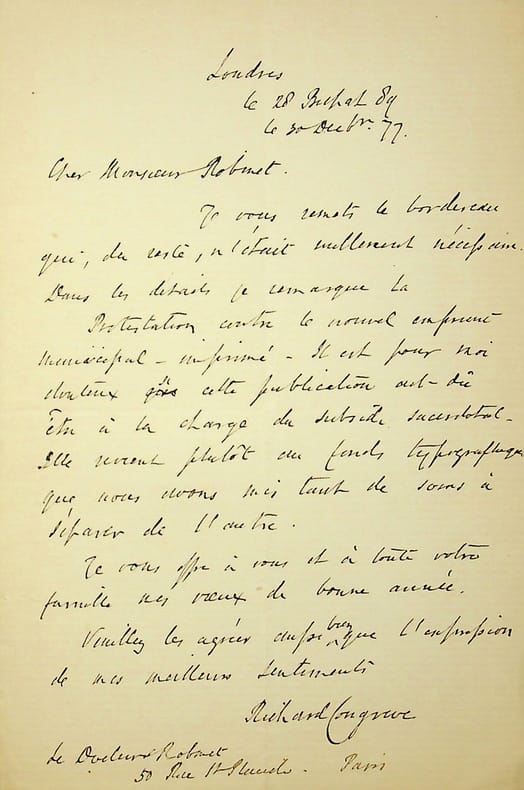 Londres
le 28 Bichat 89
le 30 Decbr. 77.
Cher Monsieur Robinet.
Je vous remets le bordereau
qui, du reste, n'était nullement nécessaire.
Dans les détails je remarque la
Protestation contre le nouvel emprunt
municipal - imprimé - Il est pour moi
douteux cette publication eut dû
être à la charge du subside sacerdotal -
Elle revient plutôt au fonds typographique
que nous avons mis tant de soins à
séparer de l'autre.
Je vous offre à vous et à toute votre
famille mes vœux de bonne année.
Veuillez les agréer aussi bien que l'expression
de mes meilleurs sentiments
Richard Congreve
le Docteur Robinet
50 Rue St Placide. Paris